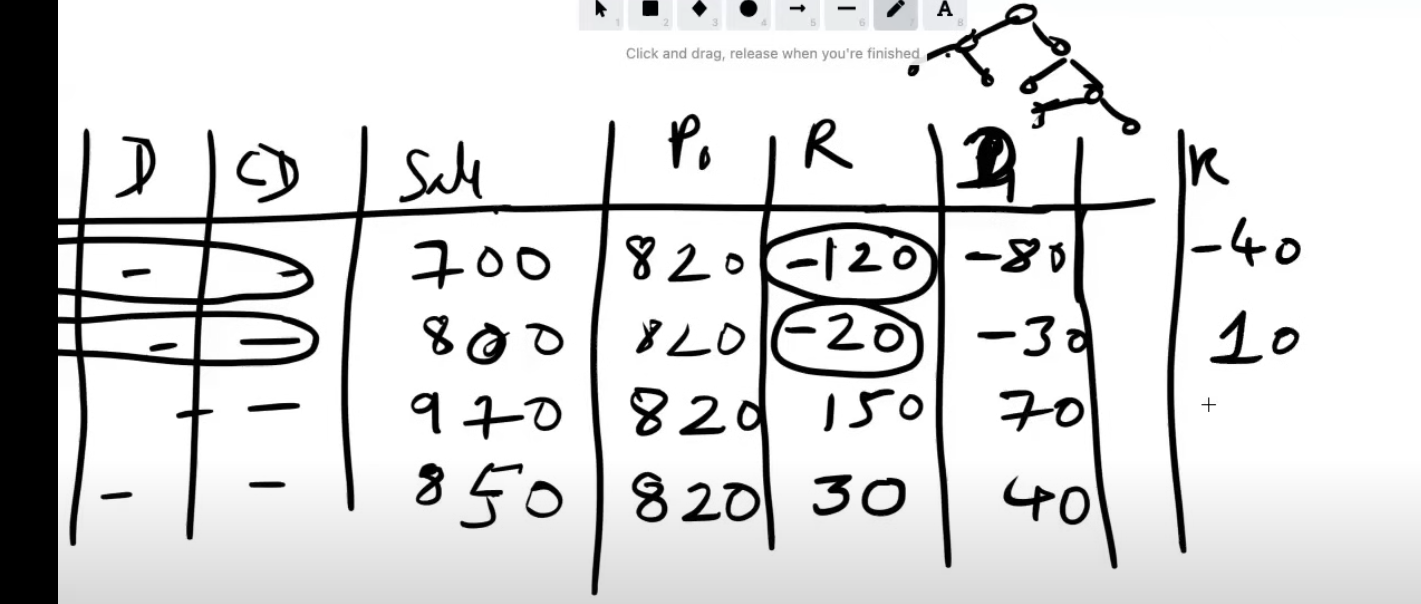 1 2 3 4 5 6 7 A 8
Click and drag, release when you're finished
D CD Sale P₀ R R
- - 700 820 -120 -80 -40
- - 800 820 -20 -30 10
- - 970 820 150 70
- - 850 820 30 40